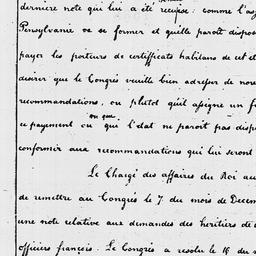 dernière note qui lui a été remise: comme l'as
Pensylvanie va se former et quelle paroît dispos
payer les porteurs de certifficats habitans de cet ét
désirer que le Congrès veuille bien adresser de nouv
recommandations, ou plutôt qu'il assigne un f
ce payement ou que l'état ne paroît pas dispo
conformer aux recommandations qui lui seront
Le Chargé des affaires du Roi au
de remettre au Congrès le 7 du mois de Decem
une note relative aux demandes des heritiers de
officiers françois. Le Congrès a resolu le 16 du